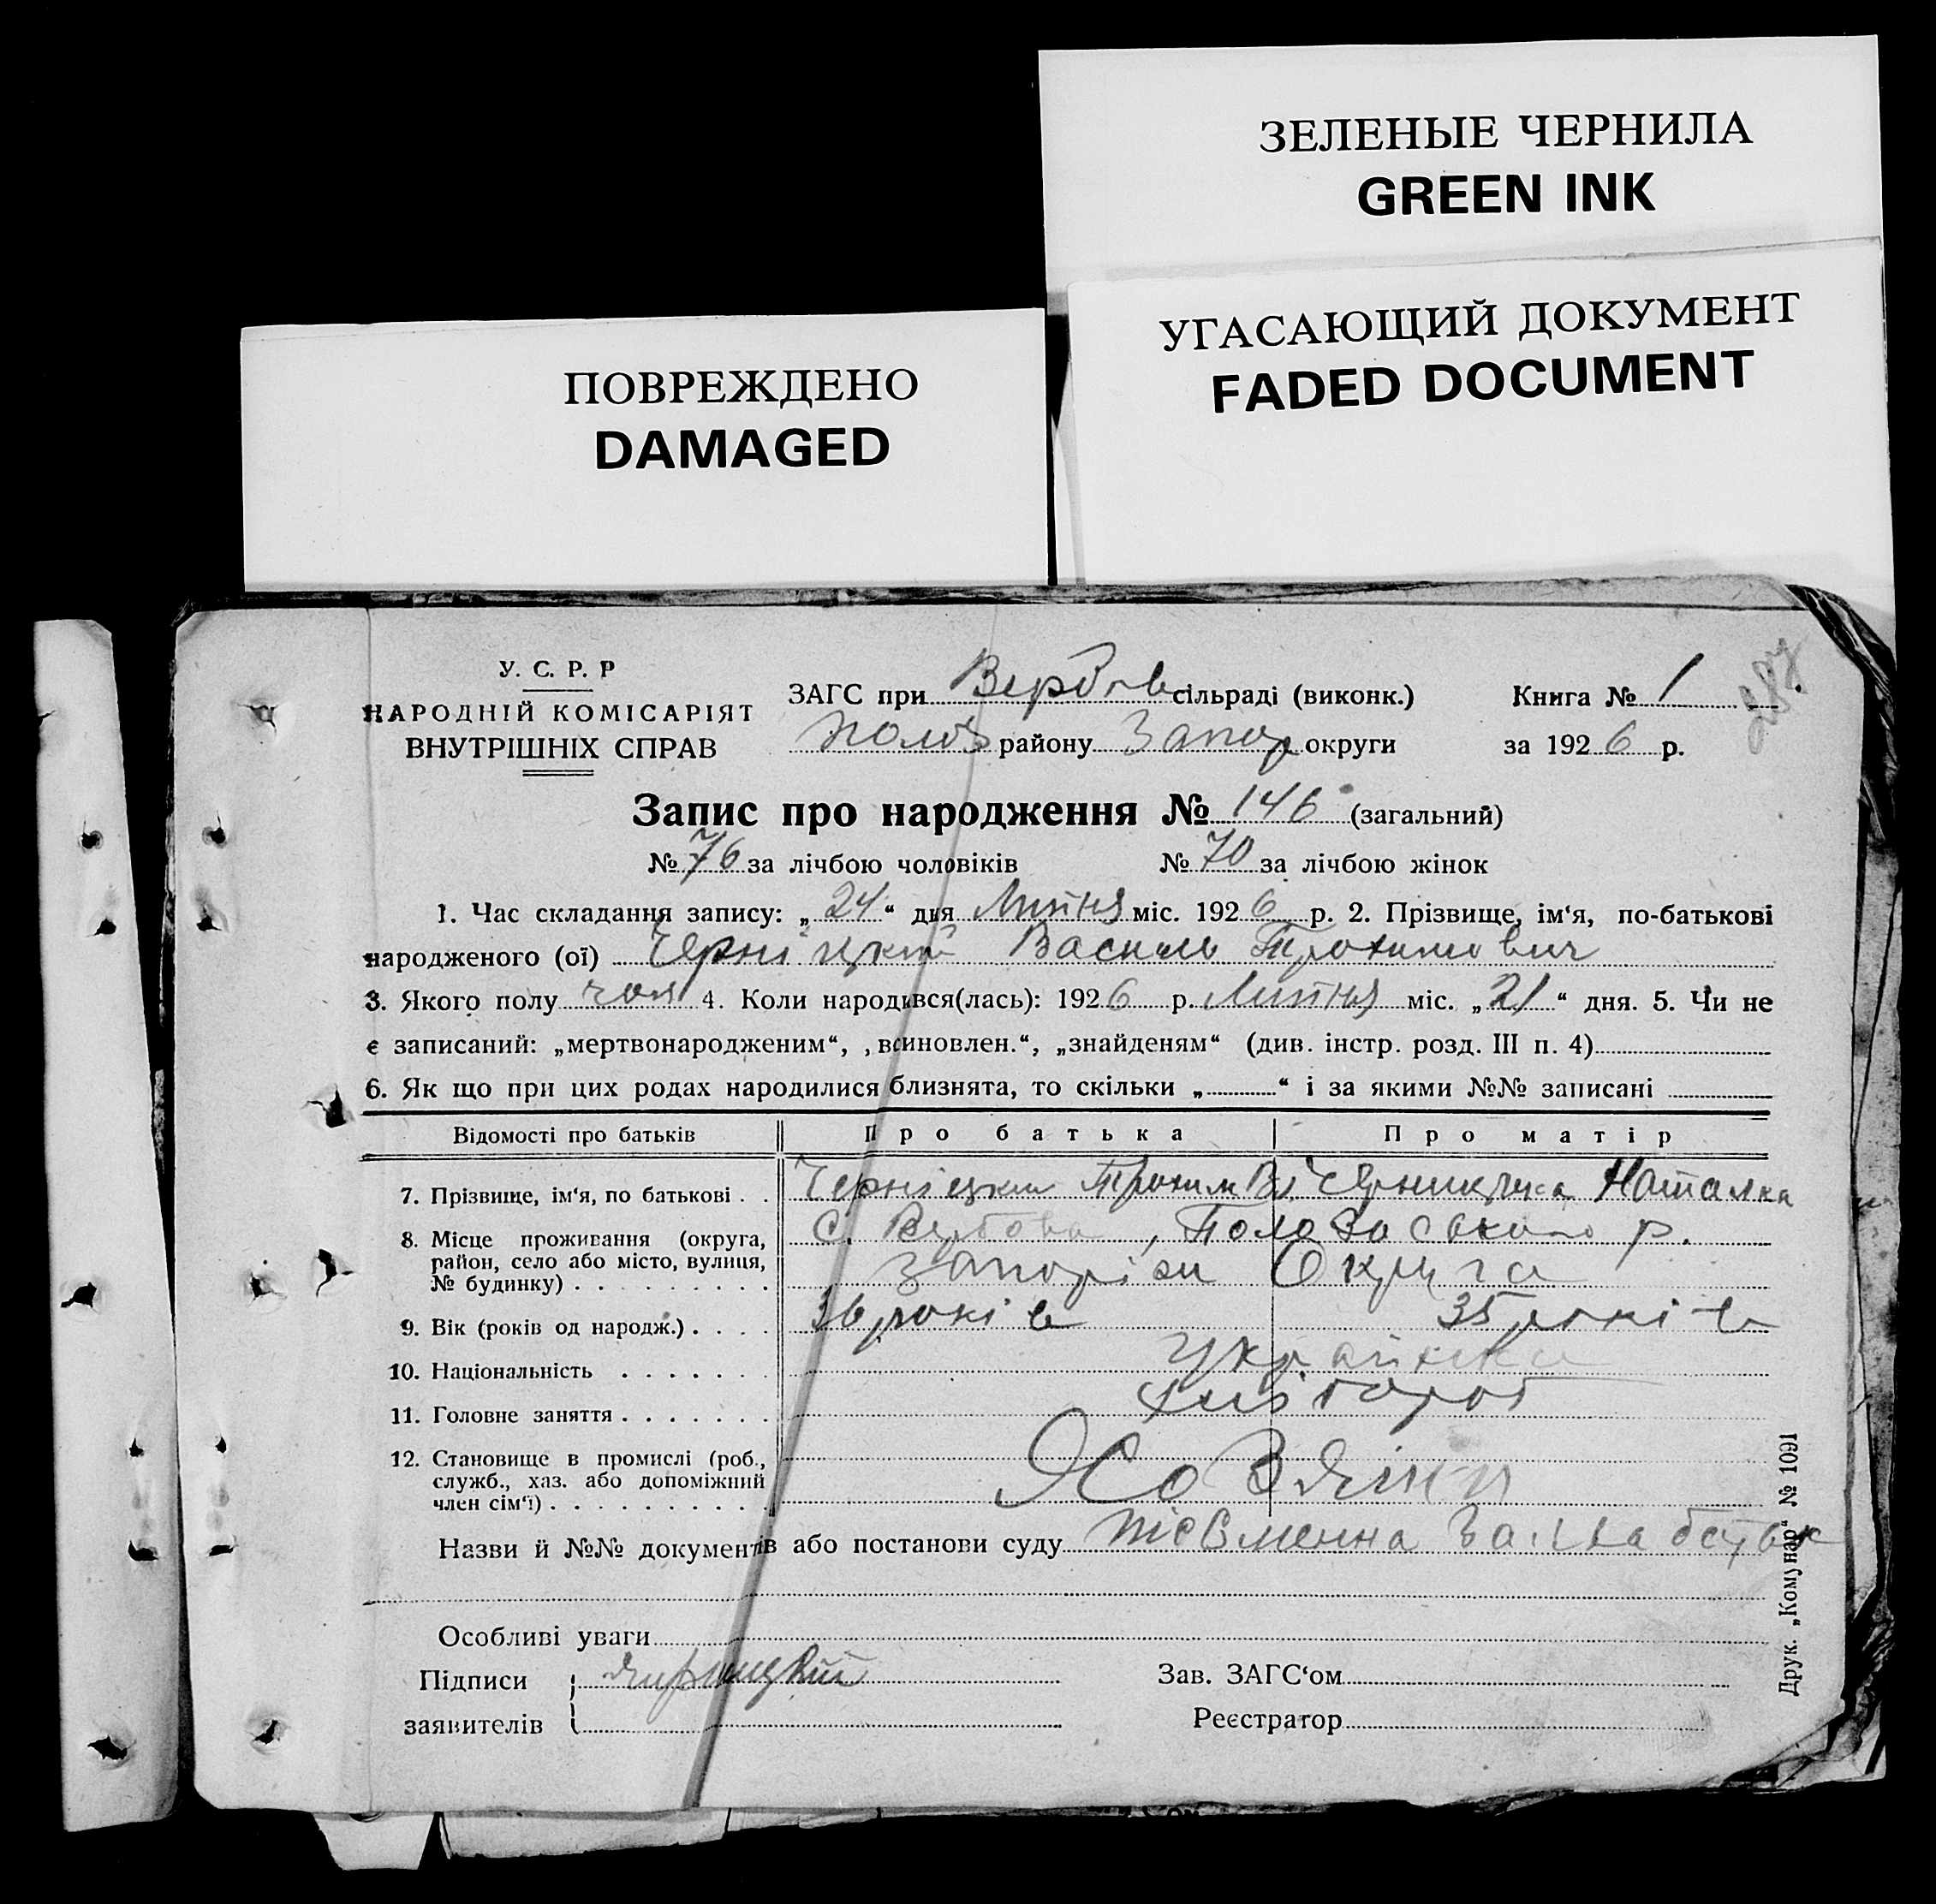 ЗЕЛЕНЫЕ ЧЕРНИЛА
GREEN INK
УГАСАЮЩИЙ ДОКУМЕНТ
FADED DOCUMENT
ПОВРЕЖДЕНО
DAMAGED
287
У. С. Р. Р
НАРОДНІЙ КОМІСАРІЯТ
ВНУТРІШНІХ СПРАВ
ЗАГС при Вербов сільраді (виконк.) Книга № 1
Полог району Запор округи за 1926 р.
Запис про народження № 146 (загальний)
№ 76 за лічбою чоловіків № 70 за лічбою жінок
1. Час складання запису: „24“ дня Липня міс. 1926 р. 2. Прізвище, ім‘я, по-батькові
народженого (ої) Черніцкий Василь Трохимович
3. Якого полу чол 4. Коли народився(лась): 1926 р. Липня міс. „21“ дня. 5. Чи не
є записаний: „мертвонародженим“, „всиновлен.“, „знайденям“ (див. інстр. розд. III п. 4)
6. Як що при цих родах народилися близнята, то скільки „ “ і за якими №№ записані
Відомості про батьків Про батька Про матір
7. Прізвище, ім‘я, по батькові . . Черніцкий Трохим Наталка
8. Місце проживання (округа, район, село або місто, вулиця, № будинку) . . . . . . . . . с. Вербова, р. Округа
9. Вік (років од народж.) . . . . 36 років 35 років
10. Національність . . . . . . . Українка
11. Головне заняття . . . . . . . хлібороб
12. Становище в промислі (роб., служб., хаз. або допоміжний член сім‘ї) . . . . . . . . . . Хозяїни
Назви й №№ документів або постанови суду
Особливі уваги
Підписи
заявителів
Зав. ЗАГС‘ом
Реєстратор
Друк. „Комунар“ № 1091